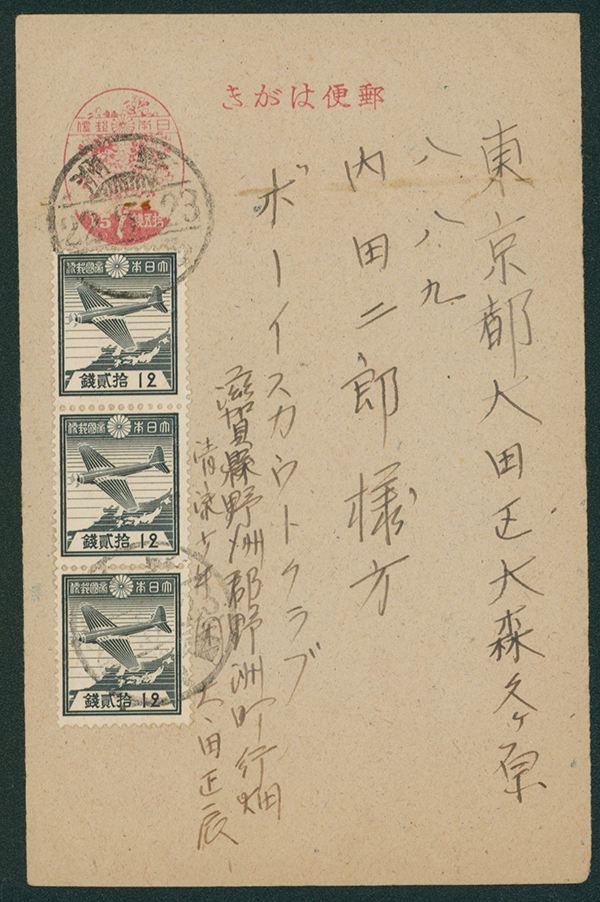 郵便はがき
東京都大田区大森久ヶ原
八八九
内田二郎様方
ボーイスカウトクラブ
滋賀縣野洲郡野洲町行畑
太田正辰
野洲
23
大日本帝國郵便
拾貳錢 12
大日本帝國郵便
拾貳錢 12
大日本帝國郵便
拾貳錢 12